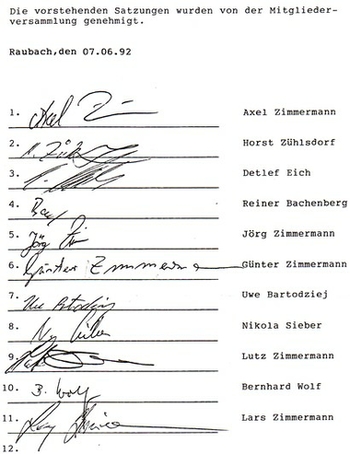 Die vorstehenden Satzungen wurden von der Mitglieder-
versammlung genehmigt.
Raubach,den 07.06.92
1. Axel Zimmermann
2. Horst Zühlsdorf
3. Detlef Eich
4. Reiner Bachenberg
5. Jörg Jörg Zimmermann
6. Günter Zimmermann Günter Zimmermann
7. Uwe Bartodziej Uwe Bartodziej
8. Nikola Sieber
9. Lutz Zimmermann
10. B. Wolf Bernhard Wolf
11. Lars Zimmermann
12.